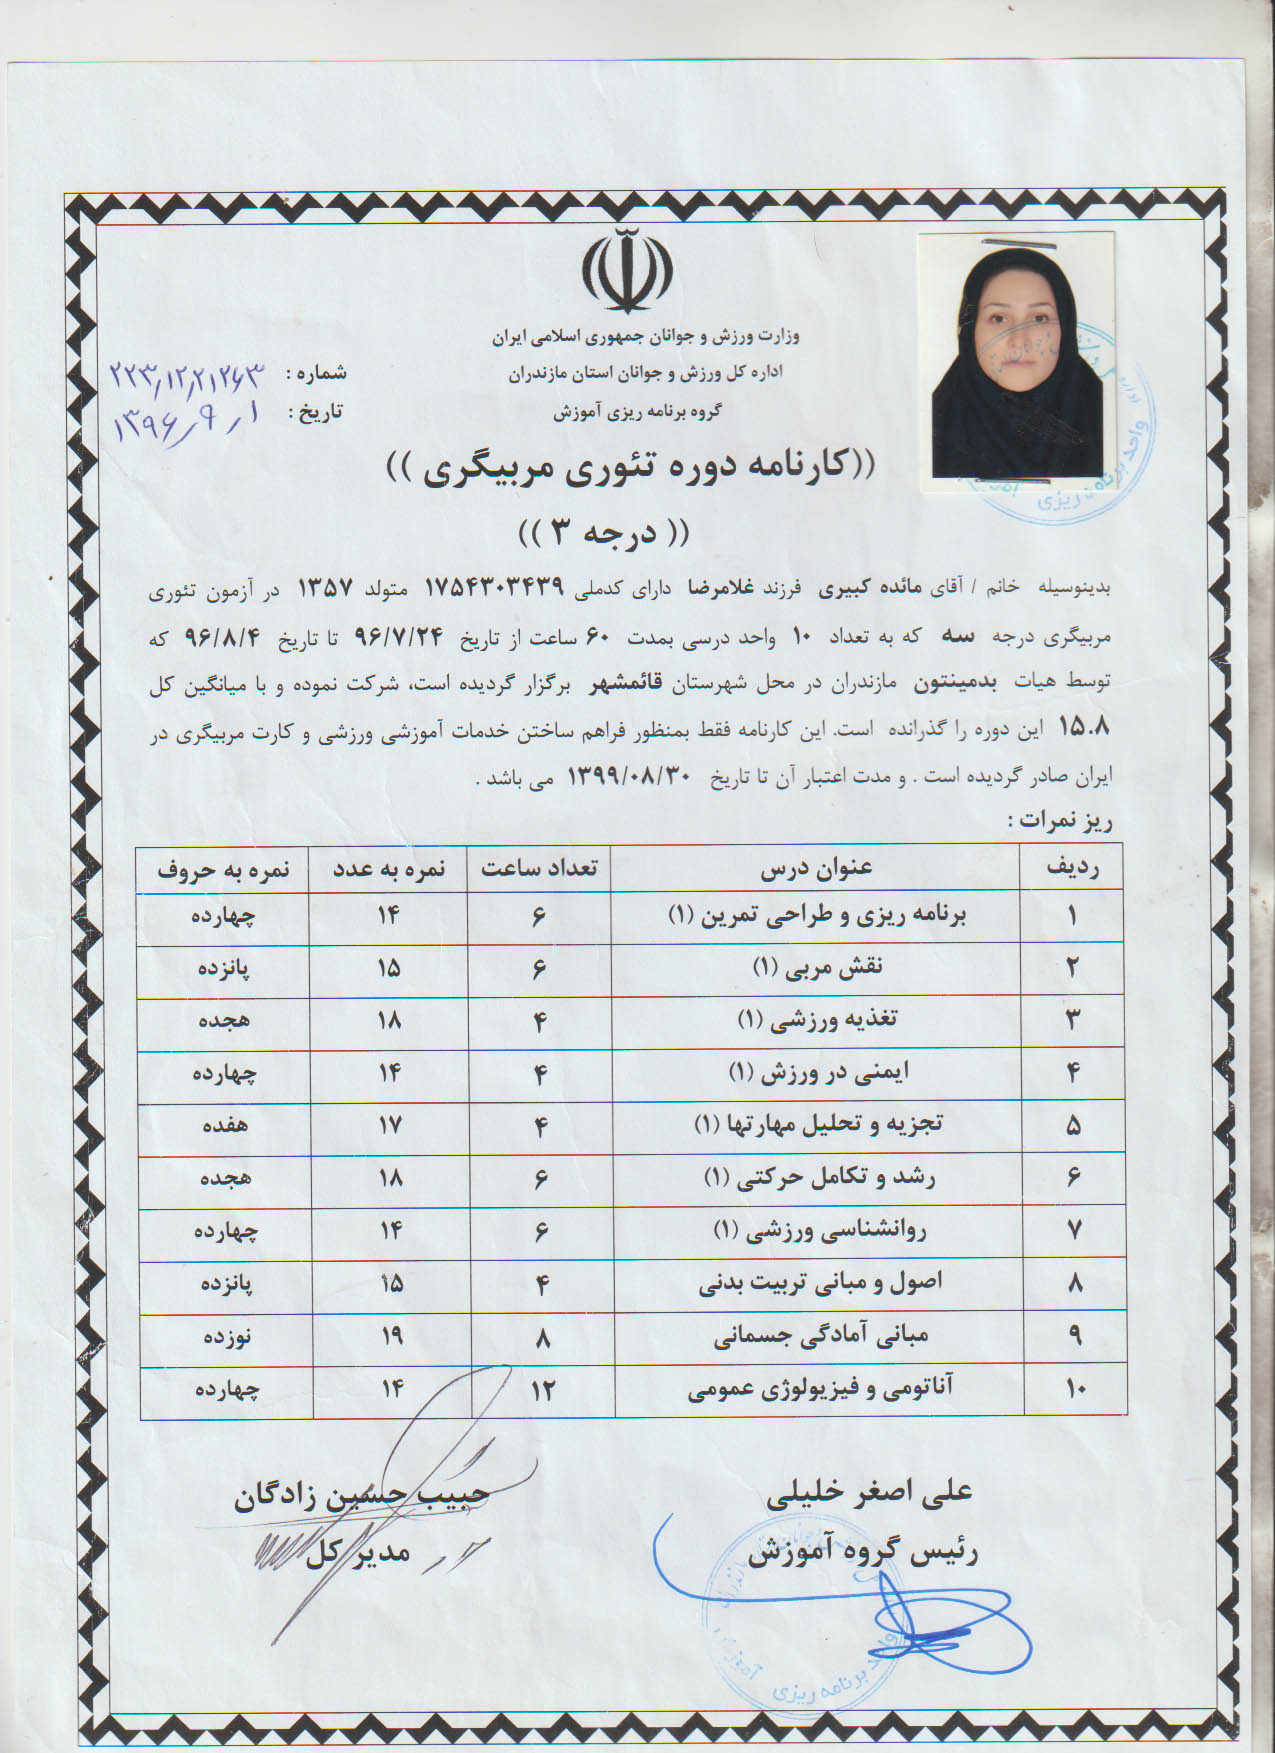 وزارت ورزش و جوانان جمهوری اسلامی ایران
اداره کل ورزش و جوانان استان مازندران
گروه برنامه ریزی آموزش
شماره : ۲۲۳/۱۲/۲۱۲۶۳
تاریخ : ۱۳۹۶/۹/۱
((کارنامه دوره تئوری مربیگری ))
(( درجه ۳ ))
بدینوسیله خانم / آقای مائده کبیری فرزند غلامرضا دارای کدملی ۱۷۵۴۳۰۳۴۳۹ متولد ۱۳۵۷ در آزمون تئوری
مربیگری درجه سه که به تعداد ۱۰ واحد درسی بمدت ۶۰ ساعت از تاریخ ۹۶/۷/۲۴ تا تاریخ ۹۶/۸/۴ که
توسط هیات بدمینتون مازندران در محل شهرستان قائمشهر برگزار گردیده است، شرکت نموده و با میانگین کل
۱۵.۸ این دوره را گذرانده است. این کارنامه فقط بمنظور فراهم ساختن خدمات آموزشی ورزشی و کارت مربیگری در
ایران صادر گردیده است . و مدت اعتبار آن تا تاریخ ۱۳۹۹/۰۸/۳۰ می باشد .
ریز نمرات :
ردیف عنوان درس تعداد ساعت نمره به عدد نمره به حروف
۱ برنامه ریزی و طراحی تمرین (۱) ۶ ۱۴ چهارده
۲ نقش مربی (۱) ۶ ۱۵ پانزده
۳ تغذیه ورزشی (۱) ۴ ۱۸ هجده
۴ ایمنی در ورزش (۱) ۴ ۱۴ چهارده
۵ تجزیه و تحلیل مهارتها (۱) ۴ ۱۷ هفده
۶ رشد و تکامل حرکتی (۱) ۶ ۱۸ هجده
۷ روانشناسی ورزشی (۱) ۶ ۱۴ چهارده
۸ اصول و مبانی تربیت بدنی ۴ ۱۵ پانزده
۹ مبانی آمادگی جسمانی ۸ ۱۹ نوزده
۱۰ آناتومی و فیزیولوژی عمومی ۱۲ ۱۴ چهارده
علی اصغر خلیلی
رئیس گروه آموزش
حبیب حسین زادگان
مدیر کل
واحد برنامه ریزی آموزش